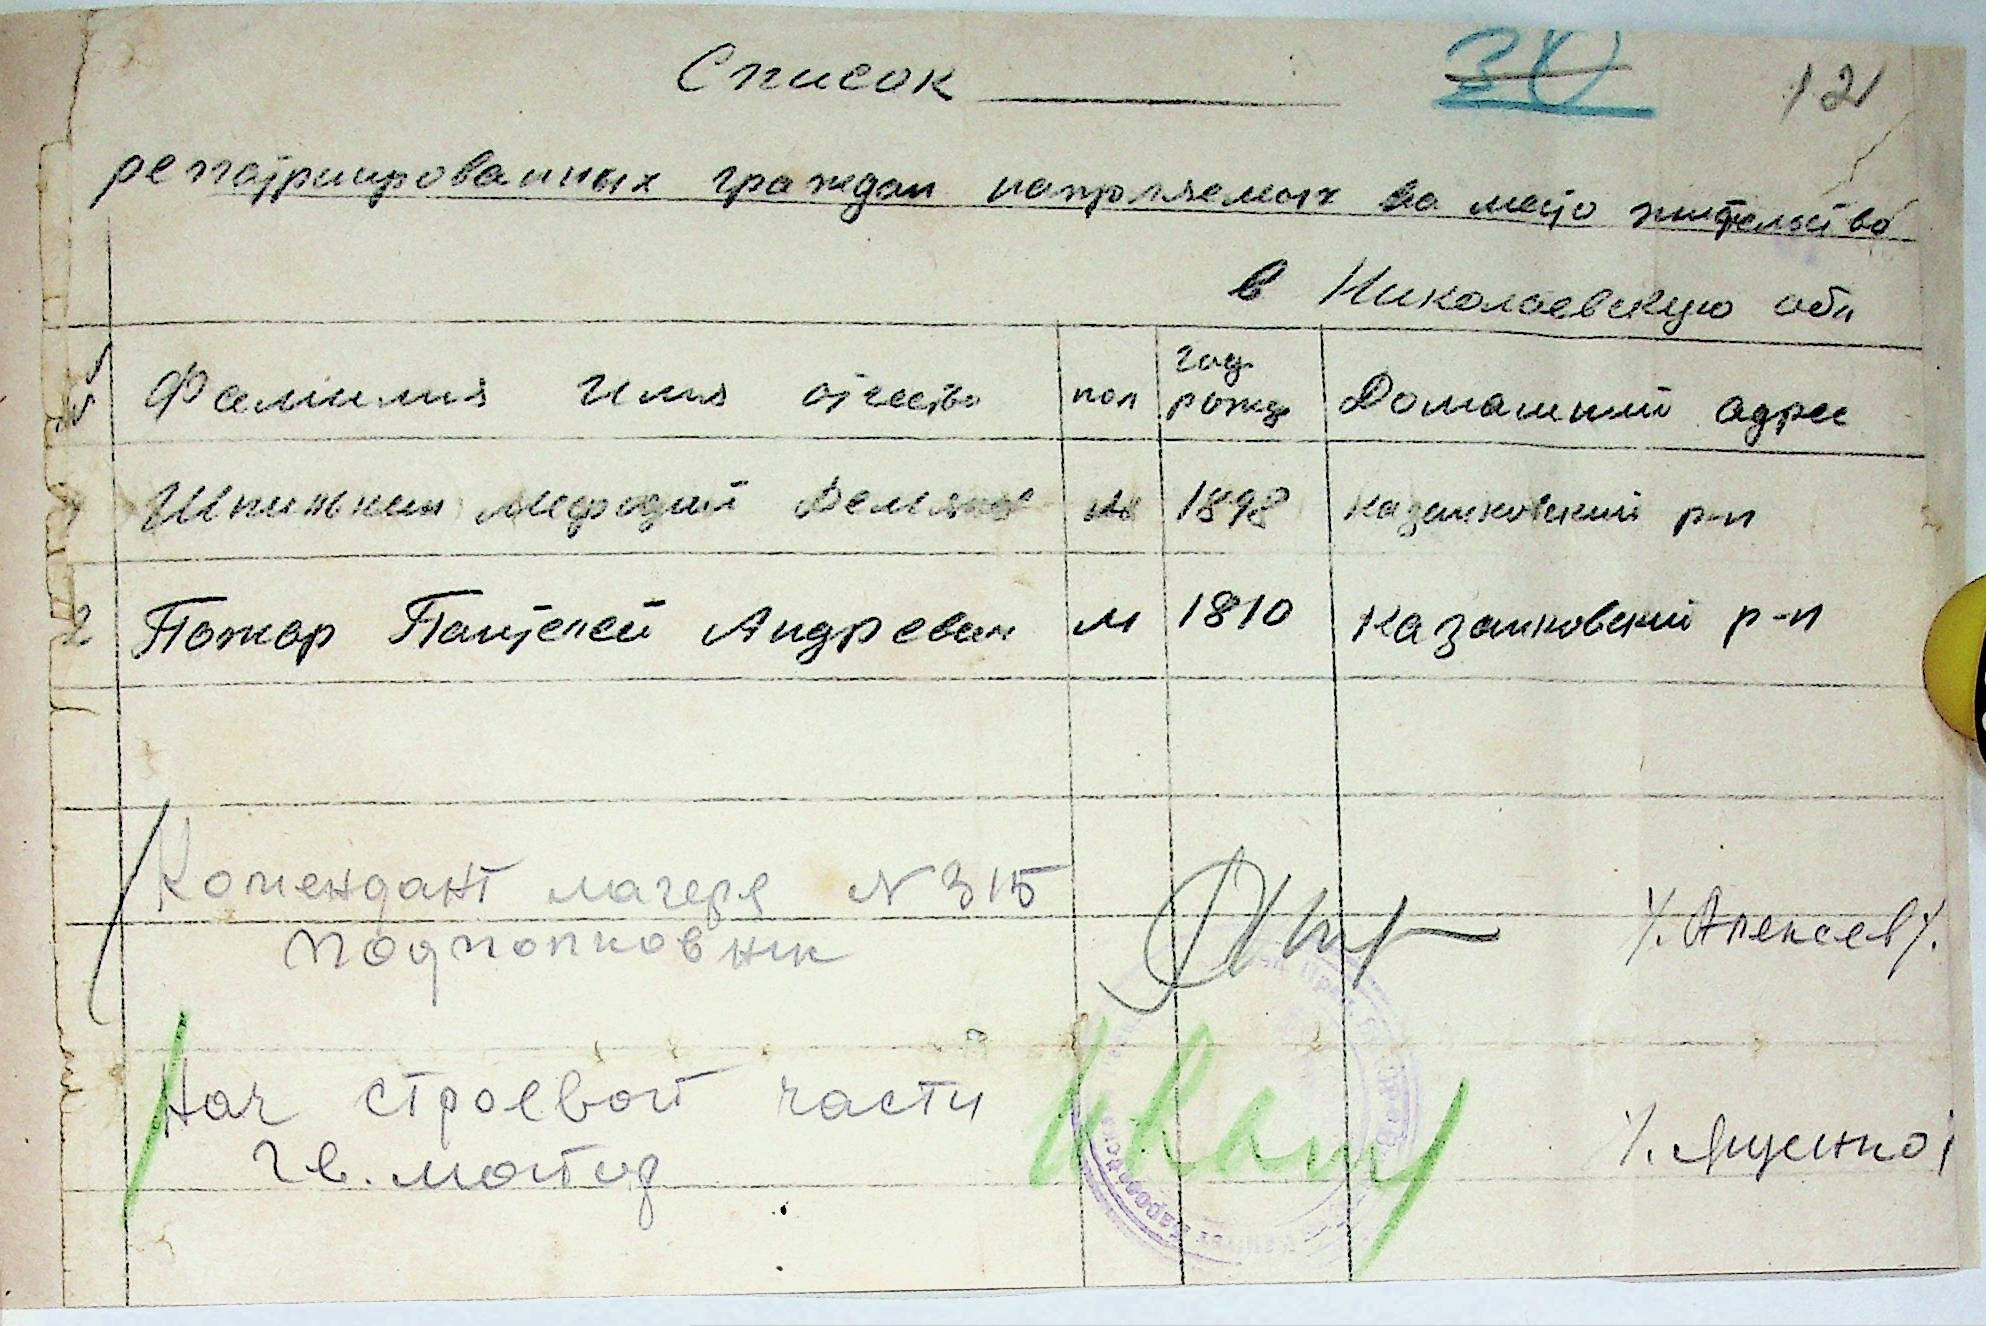 Список
30 12
репатриированных граждан напрвляемых на место жительства
в Николаевскую обл
№ Фамилия Имя отчество пол год рожд Домашний адрес
1 Шпинькин Мефодий Демянов м 1898 Казанковский р-н
2 Пожар Пантелей Андревич м 1810 Казанковский р-н
Комендант лагеря N 315
подполковник /. Алексеев /.
Нач строевой части
гв. майор /. Яценко /